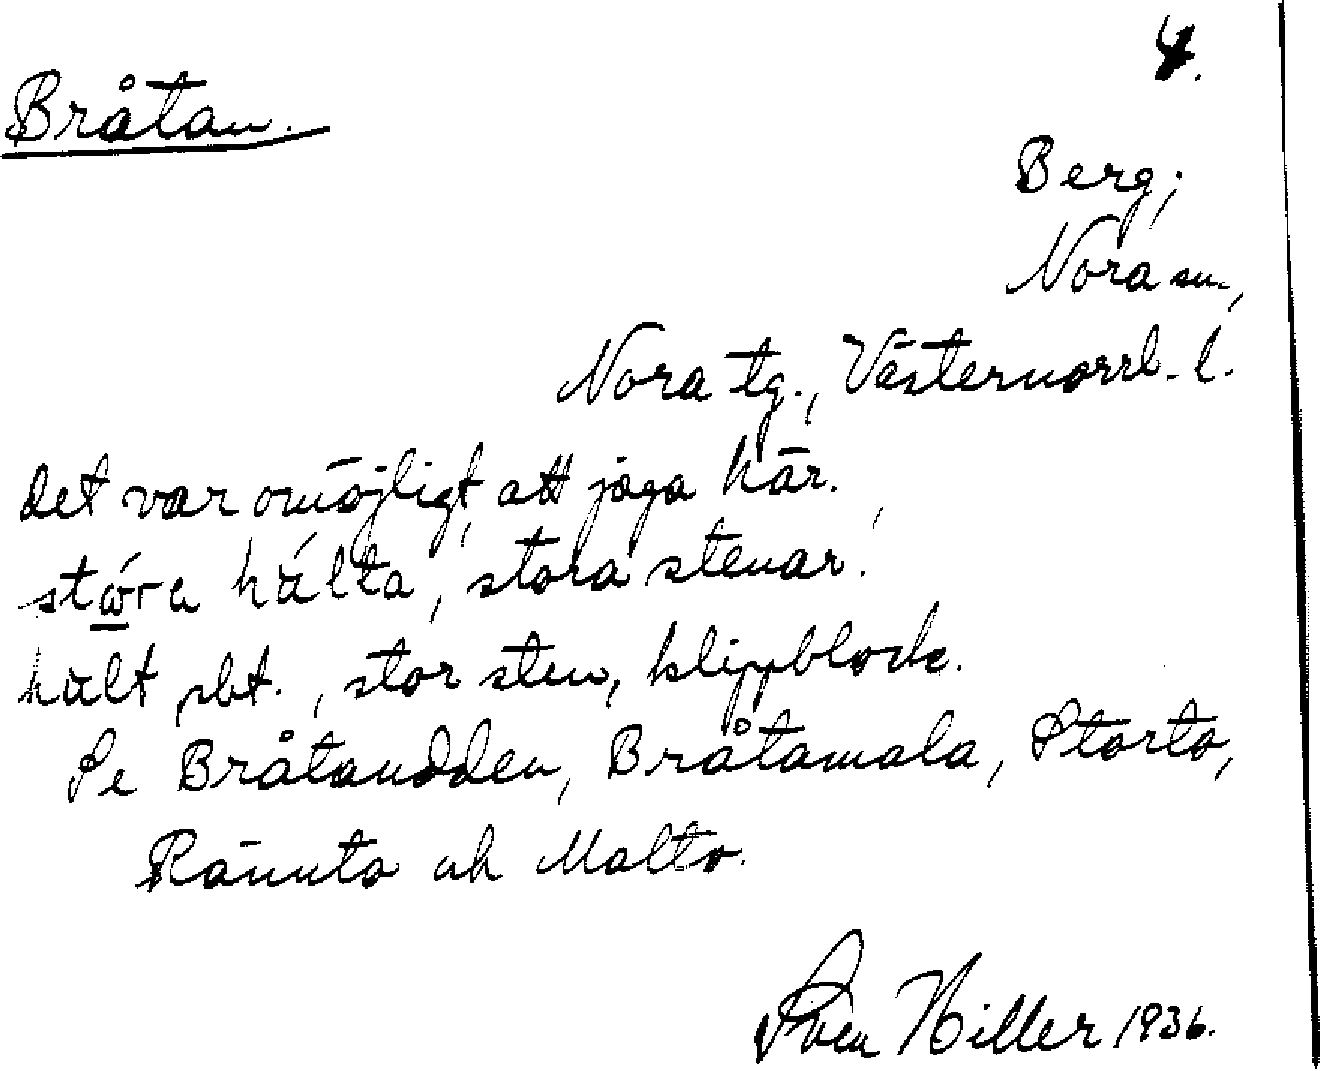 4.
Bråtan.
Berg;
Nora sn.,
Nora tg., Västernorrl. l.
det var omöjligt att jaga här.
stóra hálta, stora stenar.
halt sbt., stor sten, klippblock.
Se Bråtaudden, Bråtamala, Storto,
Rännto och Malto.
Sven Hiller 1936.